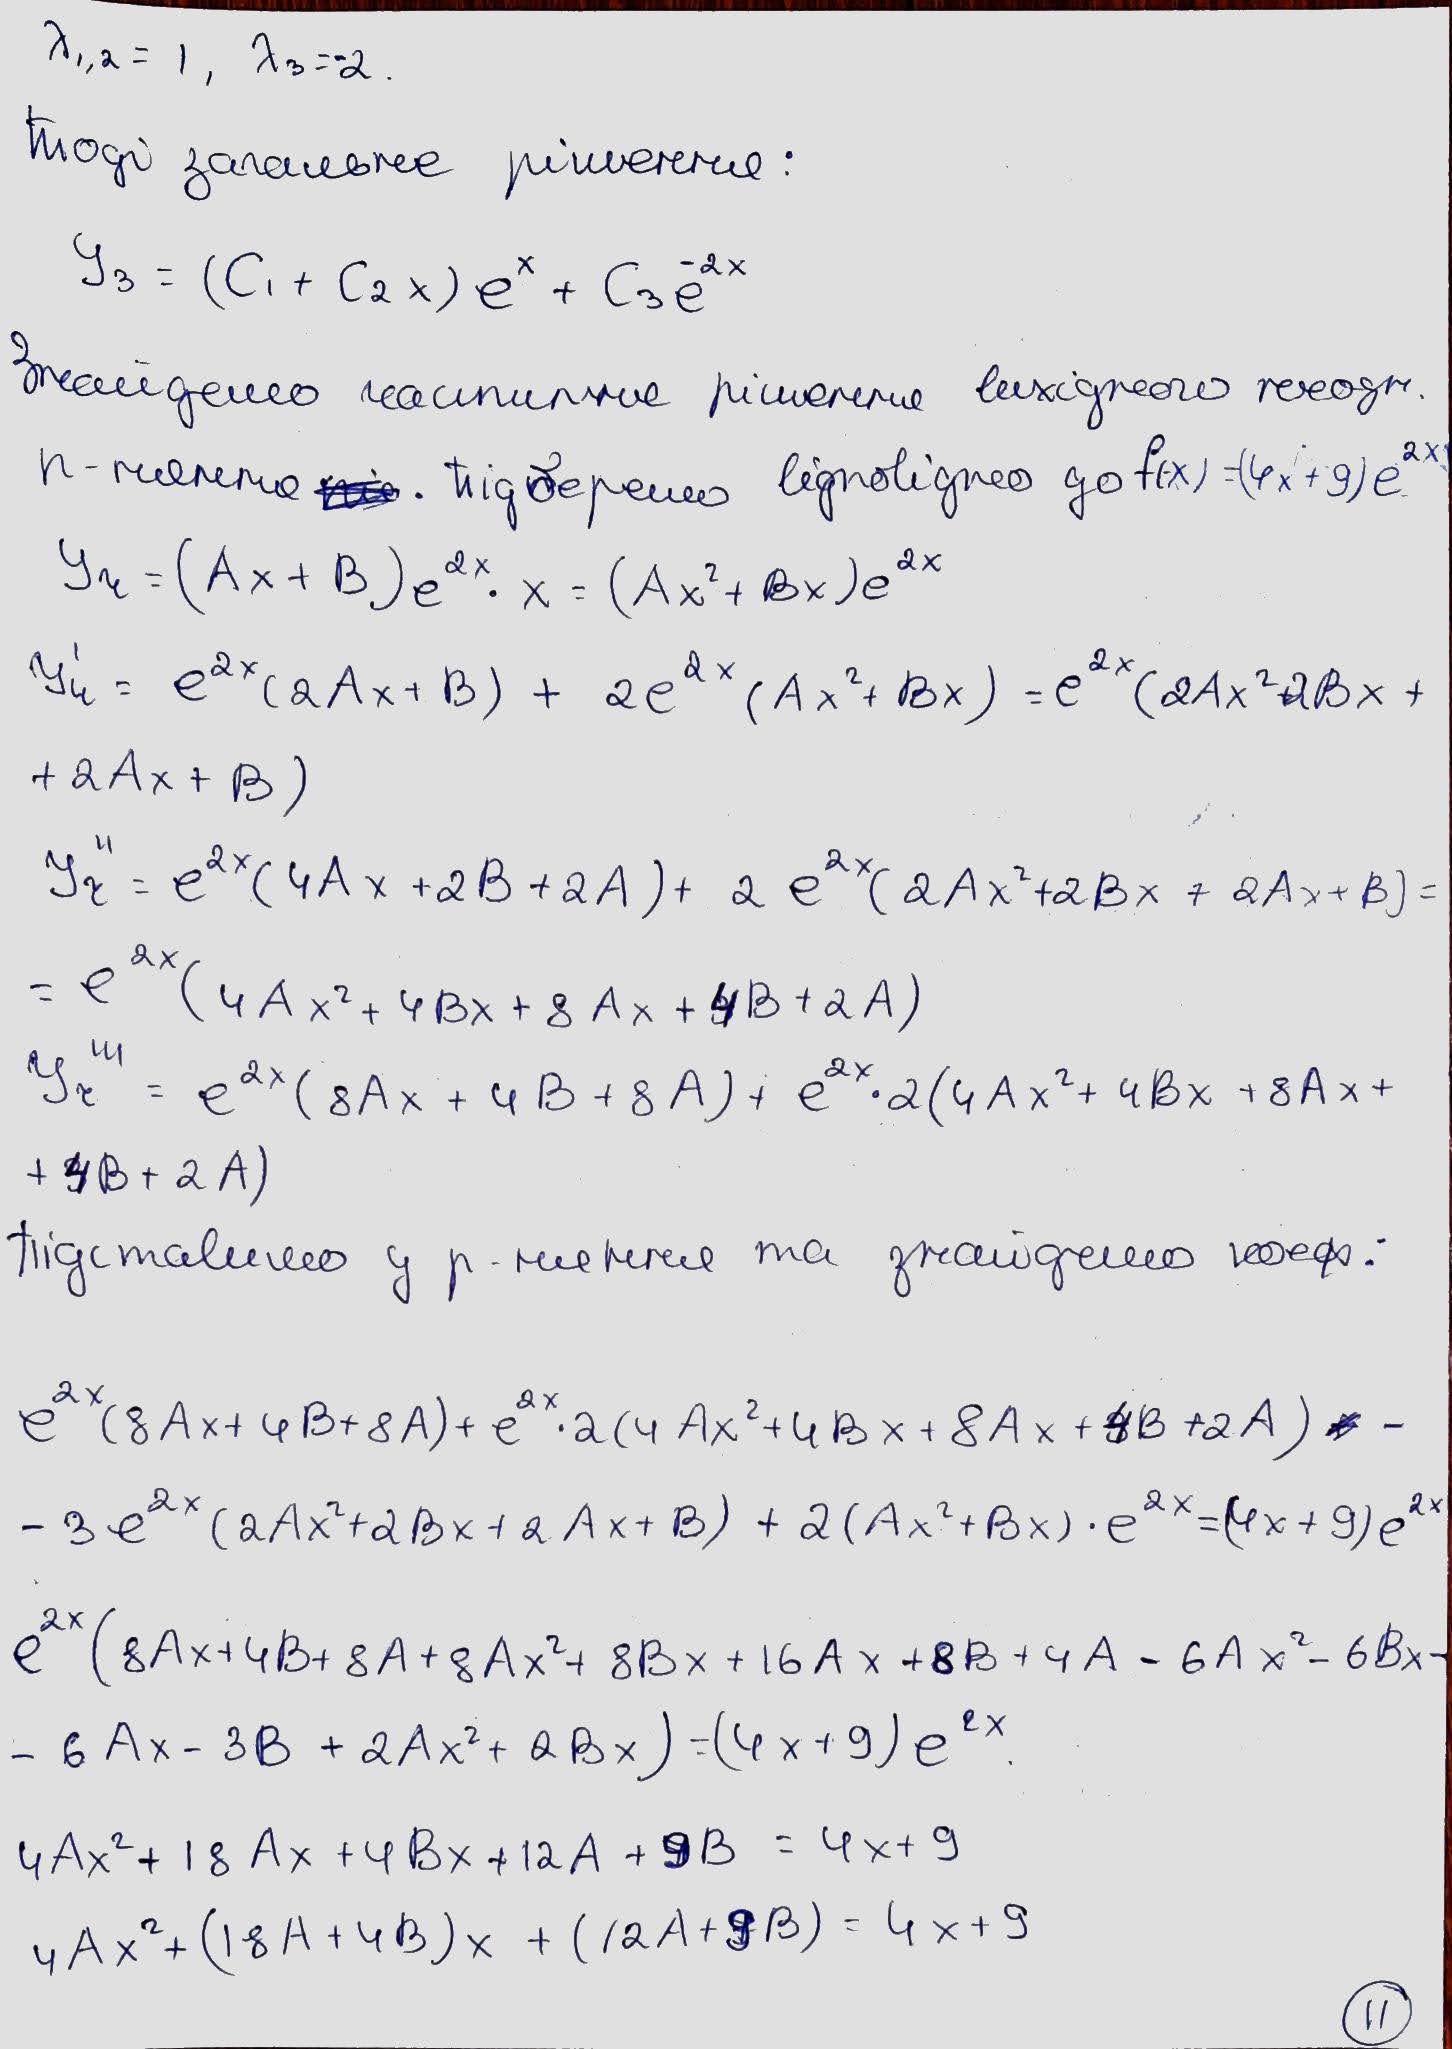 λ₁,₂ = 1, λ₃ = -2.
Тоді загальне рішення:
y₃ = (C₁ + C₂x)eˣ + C₃e⁻²ˣ
Знайдемо частинне рішення вихідного неодн.
р-няння. Підберемо відповідно до f(x) = (4x + 9)e²ˣ
yч = (Ax + B)e²ˣ · x = (Ax² + Bx)e²ˣ
yч' = e²ˣ(2Ax + B) + 2e²ˣ(Ax² + Bx) = e²ˣ(2Ax² + 2Bx +
+ 2Ax + B)
yч'' = e²ˣ(4Ax + 2B + 2A) + 2e²ˣ(2Ax² + 2Bx + 2Ax + B) =
= e²ˣ(4Ax² + 4Bx + 8Ax + 4B + 2A)
yч''' = e²ˣ(8Ax + 4B + 8A) + e²ˣ · 2(4Ax² + 4Bx + 8Ax +
+ 4B + 2A)
Підставимо у р-няння та знайдемо коеф.:
e²ˣ(8Ax + 4B + 8A) + e²ˣ · 2(4Ax² + 4Bx + 8Ax + 4B + 2A) -
- 3e²ˣ(2Ax² + 2Bx + 2Ax + B) + 2(Ax² + Bx) · e²ˣ = (4x + 9)e²ˣ
e²ˣ(8Ax + 4B + 8A + 8Ax² + 8Bx + 16Ax + 8B + 4A - 6Ax² - 6Bx -
- 6Ax - 3B + 2Ax² + 2Bx) = (4x + 9)e²ˣ.
4Ax² + 18Ax + 4Bx + 12A + 9B = 4x + 9
4Ax² + (18A + 4B)x + (12A + 9B) = 4x + 9
11